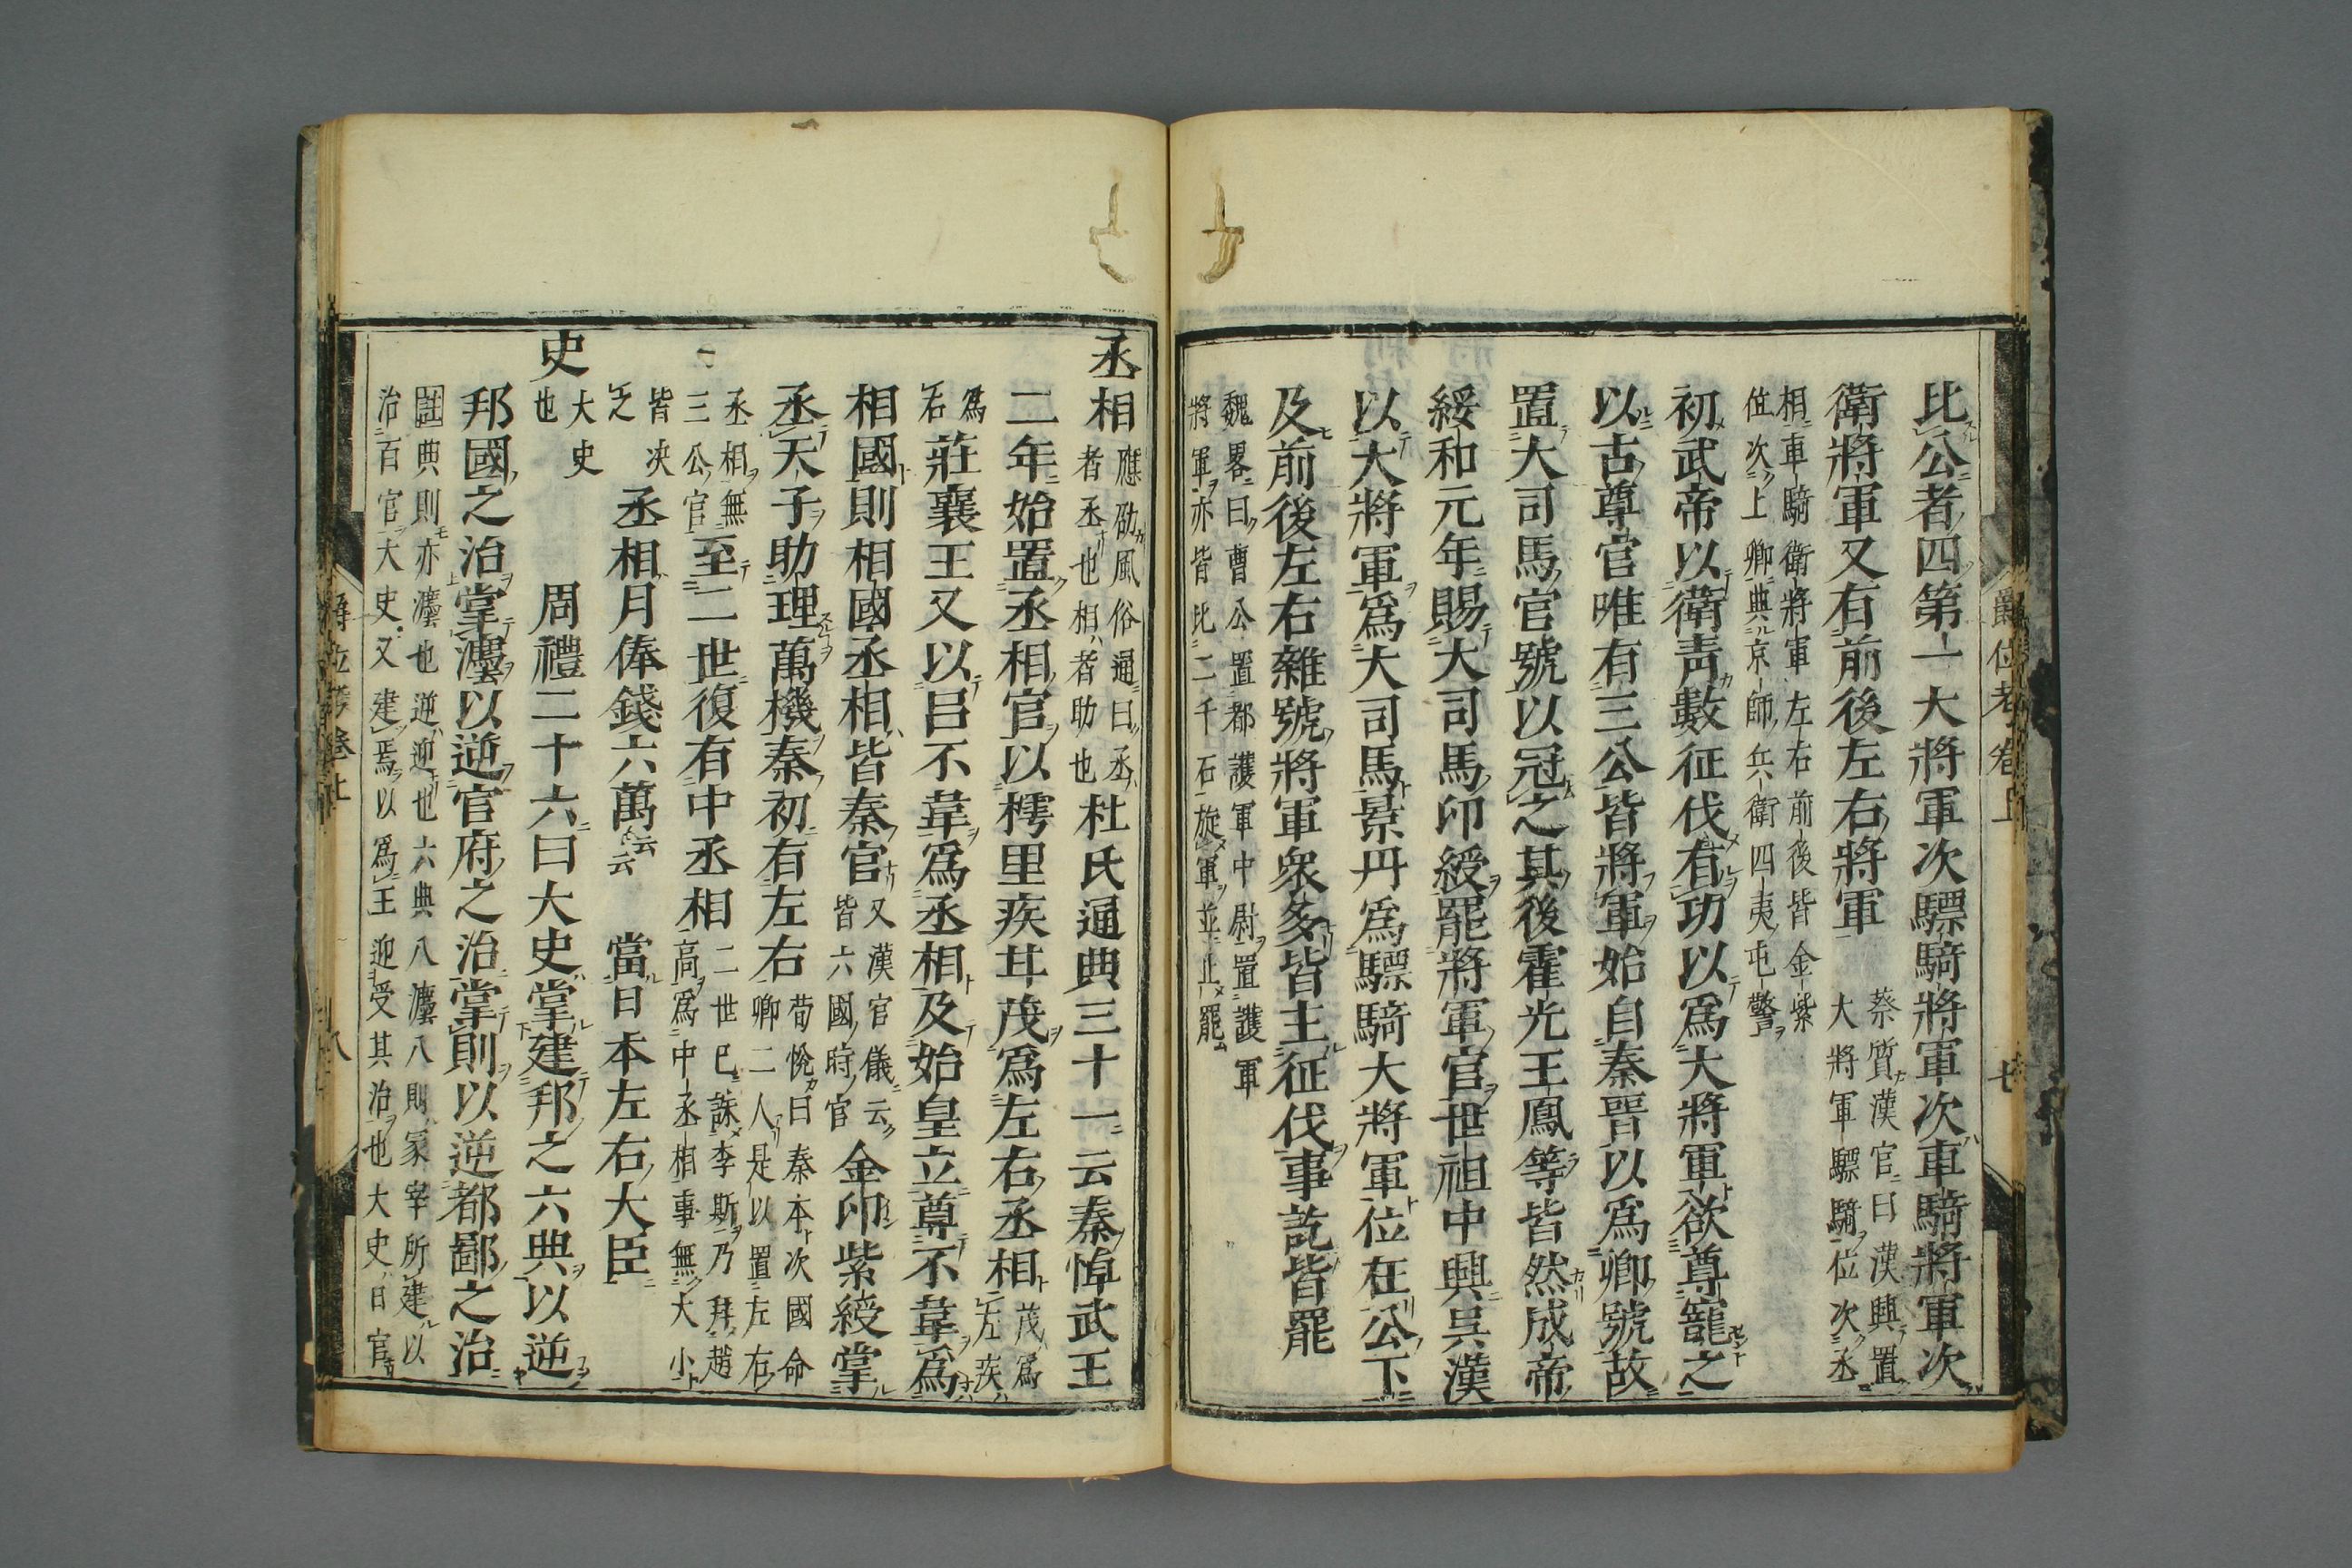 爵位考卷上
七
比公者四第一大將軍次驃騎將軍次車騎將軍次
衛將軍又有前後左右將軍
蔡質漢官曰漢興置
大將軍驃騎位次丞
相車騎衛將軍左右前後皆金紫
位次上卿典京師兵衛四夷屯警
初武帝以衛青數征伐有功以爲大將軍欲尊寵之
以古尊官唯有三公皆將軍始自秦晉以爲卿號故
置大司馬官號以冠之其後霍光王鳳等皆然成帝
綏和元年賜大司馬印綬罷將軍官世祖中興吳漢
以大將軍爲大司馬景丹爲驃騎大將軍位在公下
及前後左右雜號將軍衆多皆主征伐事訖皆罷
魏畧曰曹公置都護軍中尉置護軍
將軍亦皆比二千石旋軍並止罷
丞相
應劭風俗通曰丞
者丞也相者助也
杜氏通典三十一云秦悼武王
二年始置丞相官以樗里疾甘茂爲左右丞相
茂爲
左疾
爲
右
莊襄王又以呂不韋爲丞相及始皇立尊不韋爲
相國則相國丞相皆秦官
又漢官儀云
皆六國時官
金印紫綬掌
丞天子助理萬機秦初有左右
荀悅曰秦本次國命
卿二人是以置左右
丞相無
三公官
至二世復有中丞相
二世已誅李斯乃拜趙
高爲中丞相事無大小
皆决
之
丞相月俸錢六萬云云
當日本左右大臣
史
大史
也
周禮二十六曰大史掌建邦之六典以逆
邦國之治掌灋以逆官府之治掌則以逆都鄙之治
註典則亦灋也逆迎也六典八灋八則冢宰所建以
治百官大史又建焉以爲王迎受其治也大史日官
爵位考卷上
八